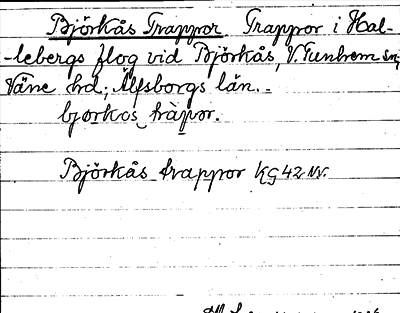 Björkås Trappor Trappor i Hal-
-lebergs flog vid Björkås, V. Tunhem sn;
Väne hd; Älfsborgs län.
bjorkos tràpor.
Björkås trappor KG 42 NV.